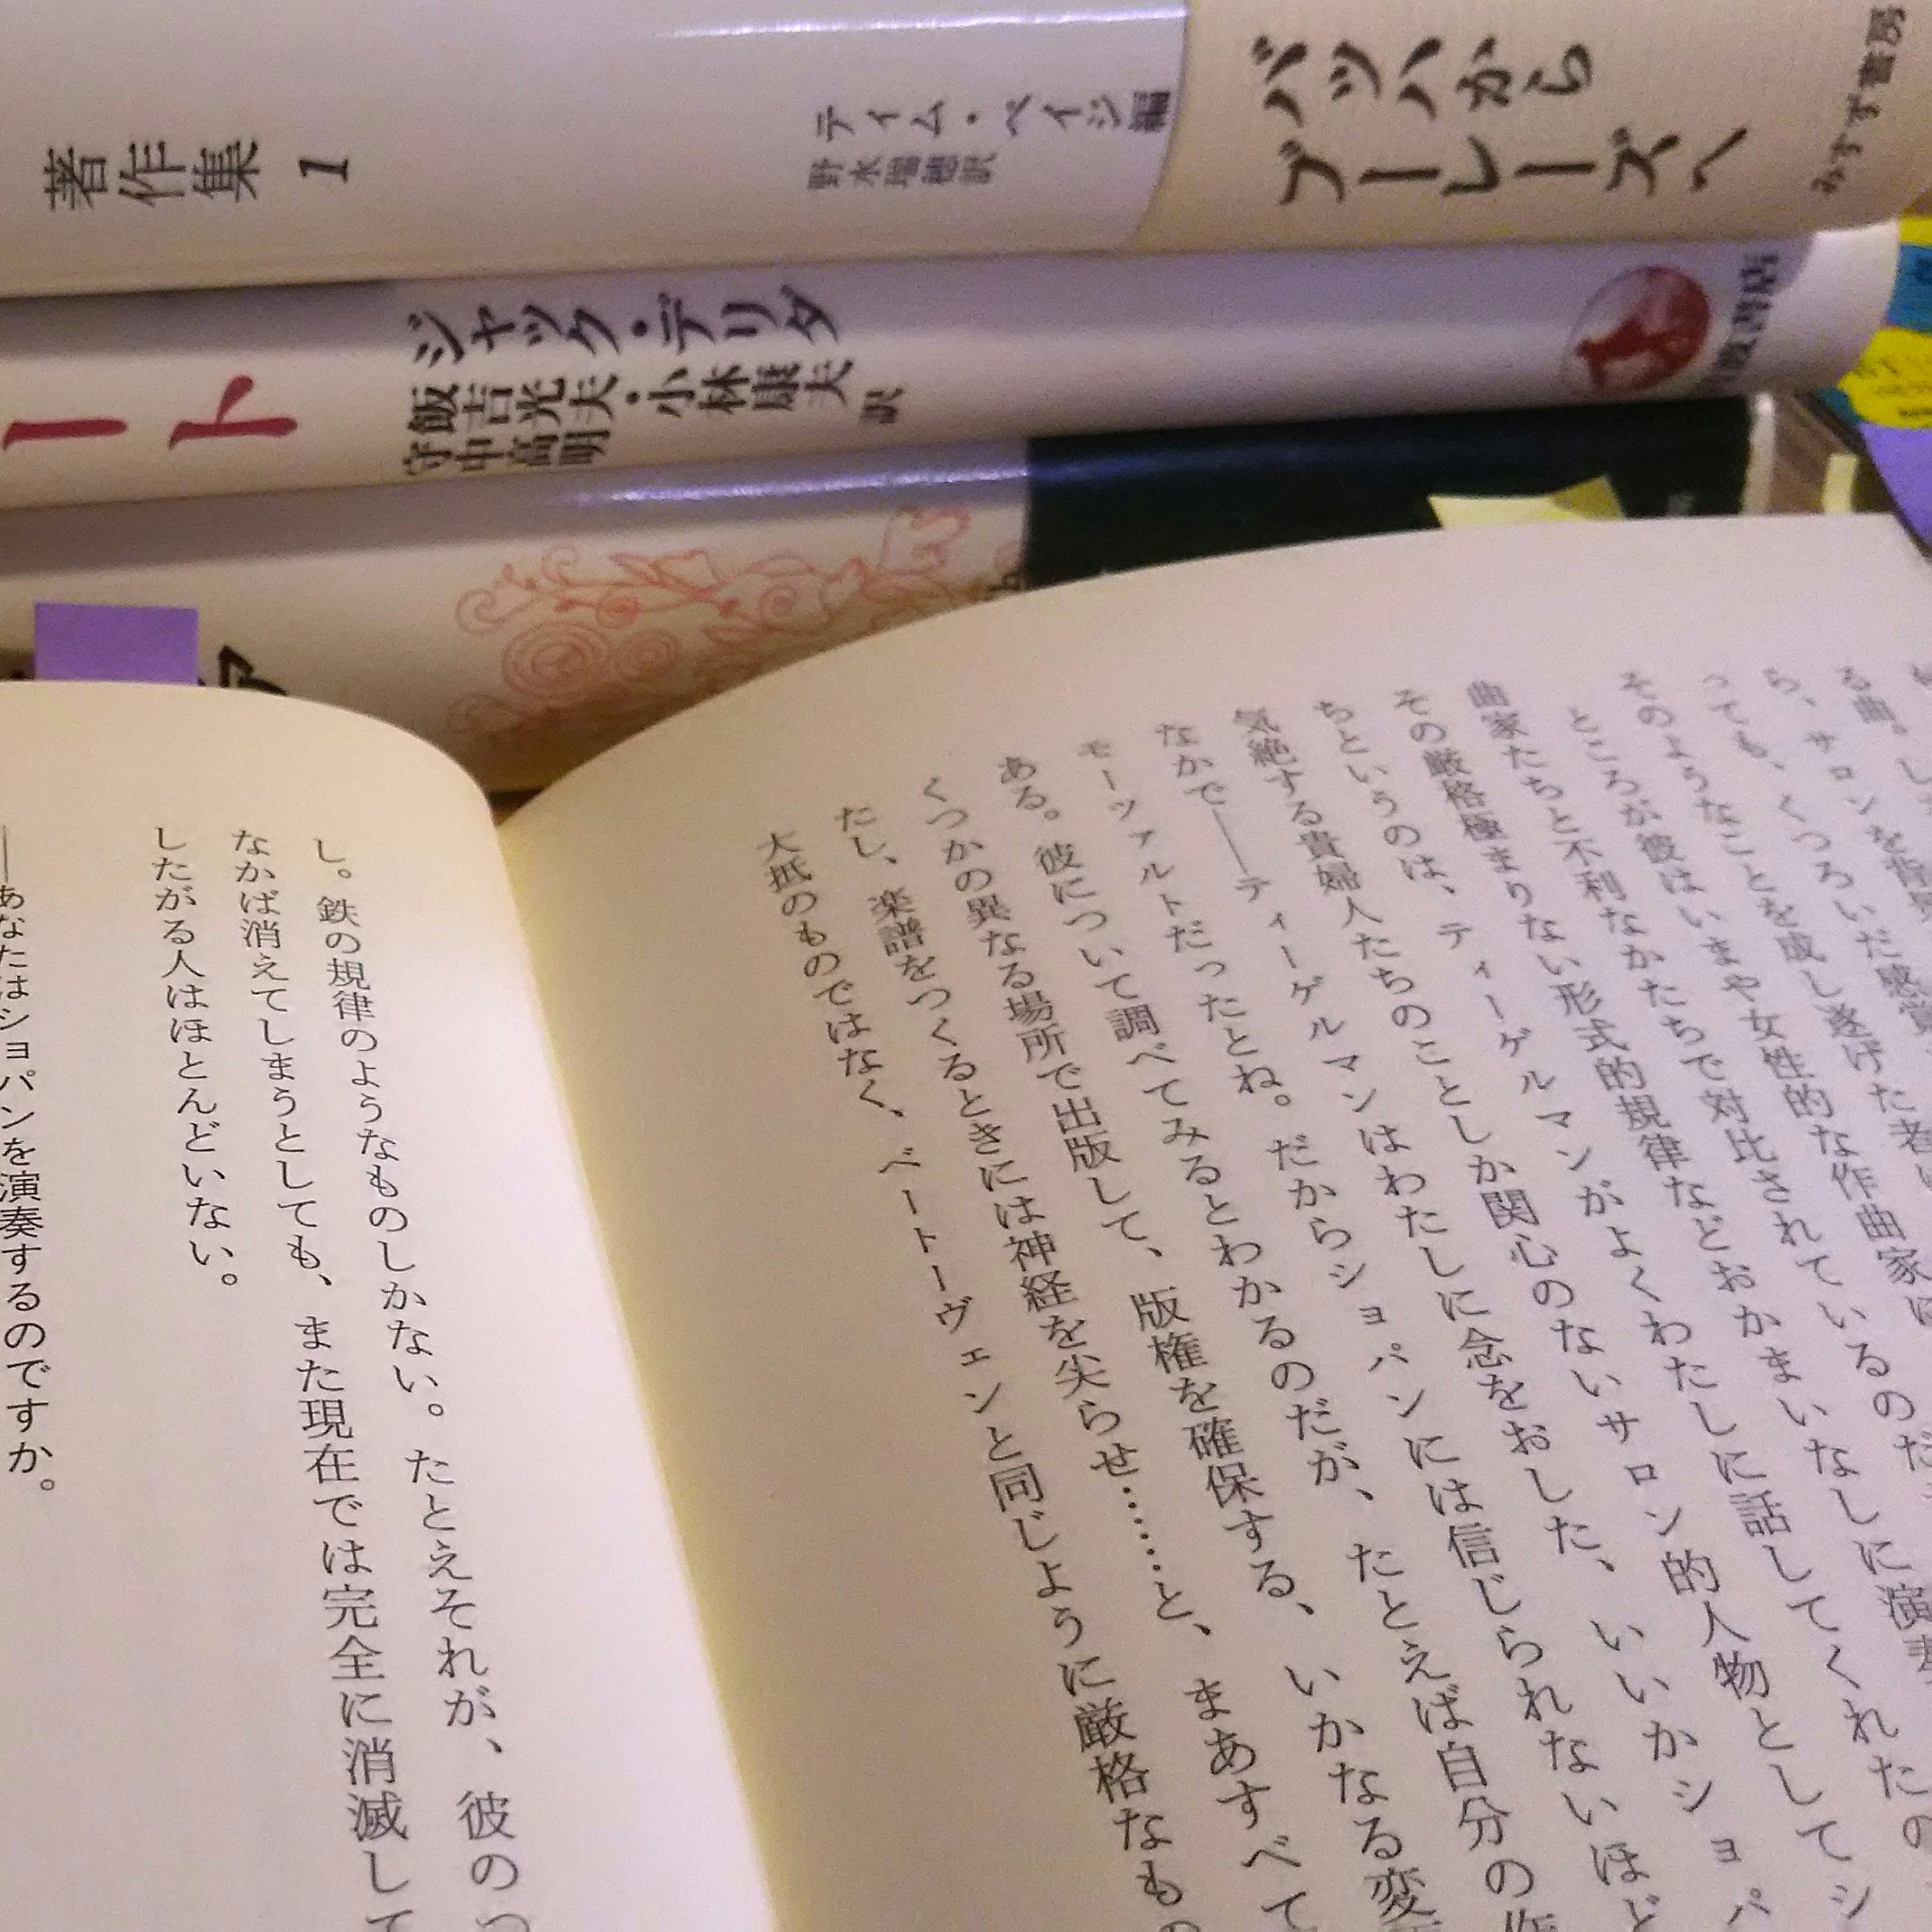 著作集 1
ティム・ペイジ編
野水瑞穂訳
バッハから
ブーレーズへ
みすず書房
ート
ジャック・デリダ
飯吉光夫・小林康夫
守中高明
訳
る曲。し
ら、サロンを背景
っても、くつろいだ感覚
そのようなことを成し遂げた者は
ところが彼はいまや女性的な作曲家に
曲家たちと不利なかたちで対比されているのだ
その厳格極まりない形式的規律などおかまいなしに演奏
ちというのは、ティーゲルマンがよくわたしに話してくれたの
気絶する貴婦人たちのことしか関心のないサロン的人物としてシ
なかで――ティーゲルマンはわたしに念をおした、いいかショパ
モーツァルトだったとね。だからショパンには信じられないほど
ある。彼について調べてみるとわかるのだが、たとえば自分の作
くつかの異なる場所で出版して、版権を確保する、いかなる変
たし、楽譜をつくるときには神経を尖らせ……と、まあすべて
大抵のものではなく、ベートーヴェンと同じように厳格なもの
し。鉄の規律のようなものしかない。たとえそれが、彼のつ
なかば消えてしまうとしても、また現在では完全に消滅して
したがる人はほとんどいない。
――あなたはショパンを演奏するのですか。